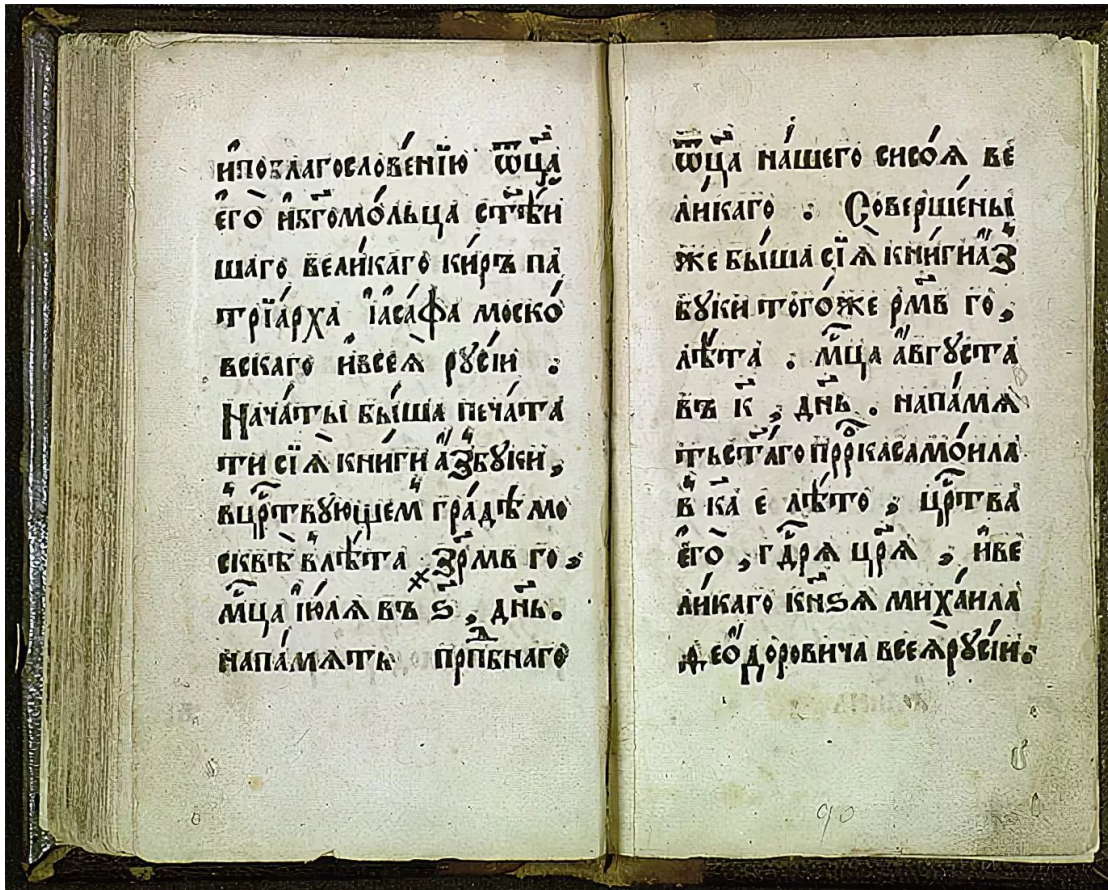 и҆поблагослове́нїю ѿц҃а
є҆го̀ и҆бг҃омо́льца ст҃ѣ́й
шаго вели́каго ки́ръ па
трїа́рха і҆аса́фа моско́
вскаго и҆всеѧ̀ рꙋсі́и :
Нача́ты бы́ша печа́та
ти сїѧ̀ кни́ги а҆́збꙋки ,
вцр҃твꙋющем гра́дѣ мо
сквѣ̀ влѣ́та ҂зрмв го ,
мц҃а і҆ю́лѧ въ ѕ҃ , дн҃ь .
напа́мѧть прпⷣбнаго
ѿц҃а на́шего сисо́ѧ ве
ли́каго : Соверше́ны
же бы́ша сїѧ̀ кни́ги а҆́з
бꙋки того́же рм҃в го ,
лѣ́та . мц҃а а҆́вгꙋста
въ к҃ , дн҃ь . напа́мѧ
тьст҃а́го прр҃ка само́ила
в ка е лѣ́то , црⷭ҇тва
є҆го̀ , гдⷭ҇рѧ цр҃ѧ , и҆ве
ли́каго кн҃ѕѧ миха́ила
ѳео́доровича всеѧ̀рꙋсі́и :
90